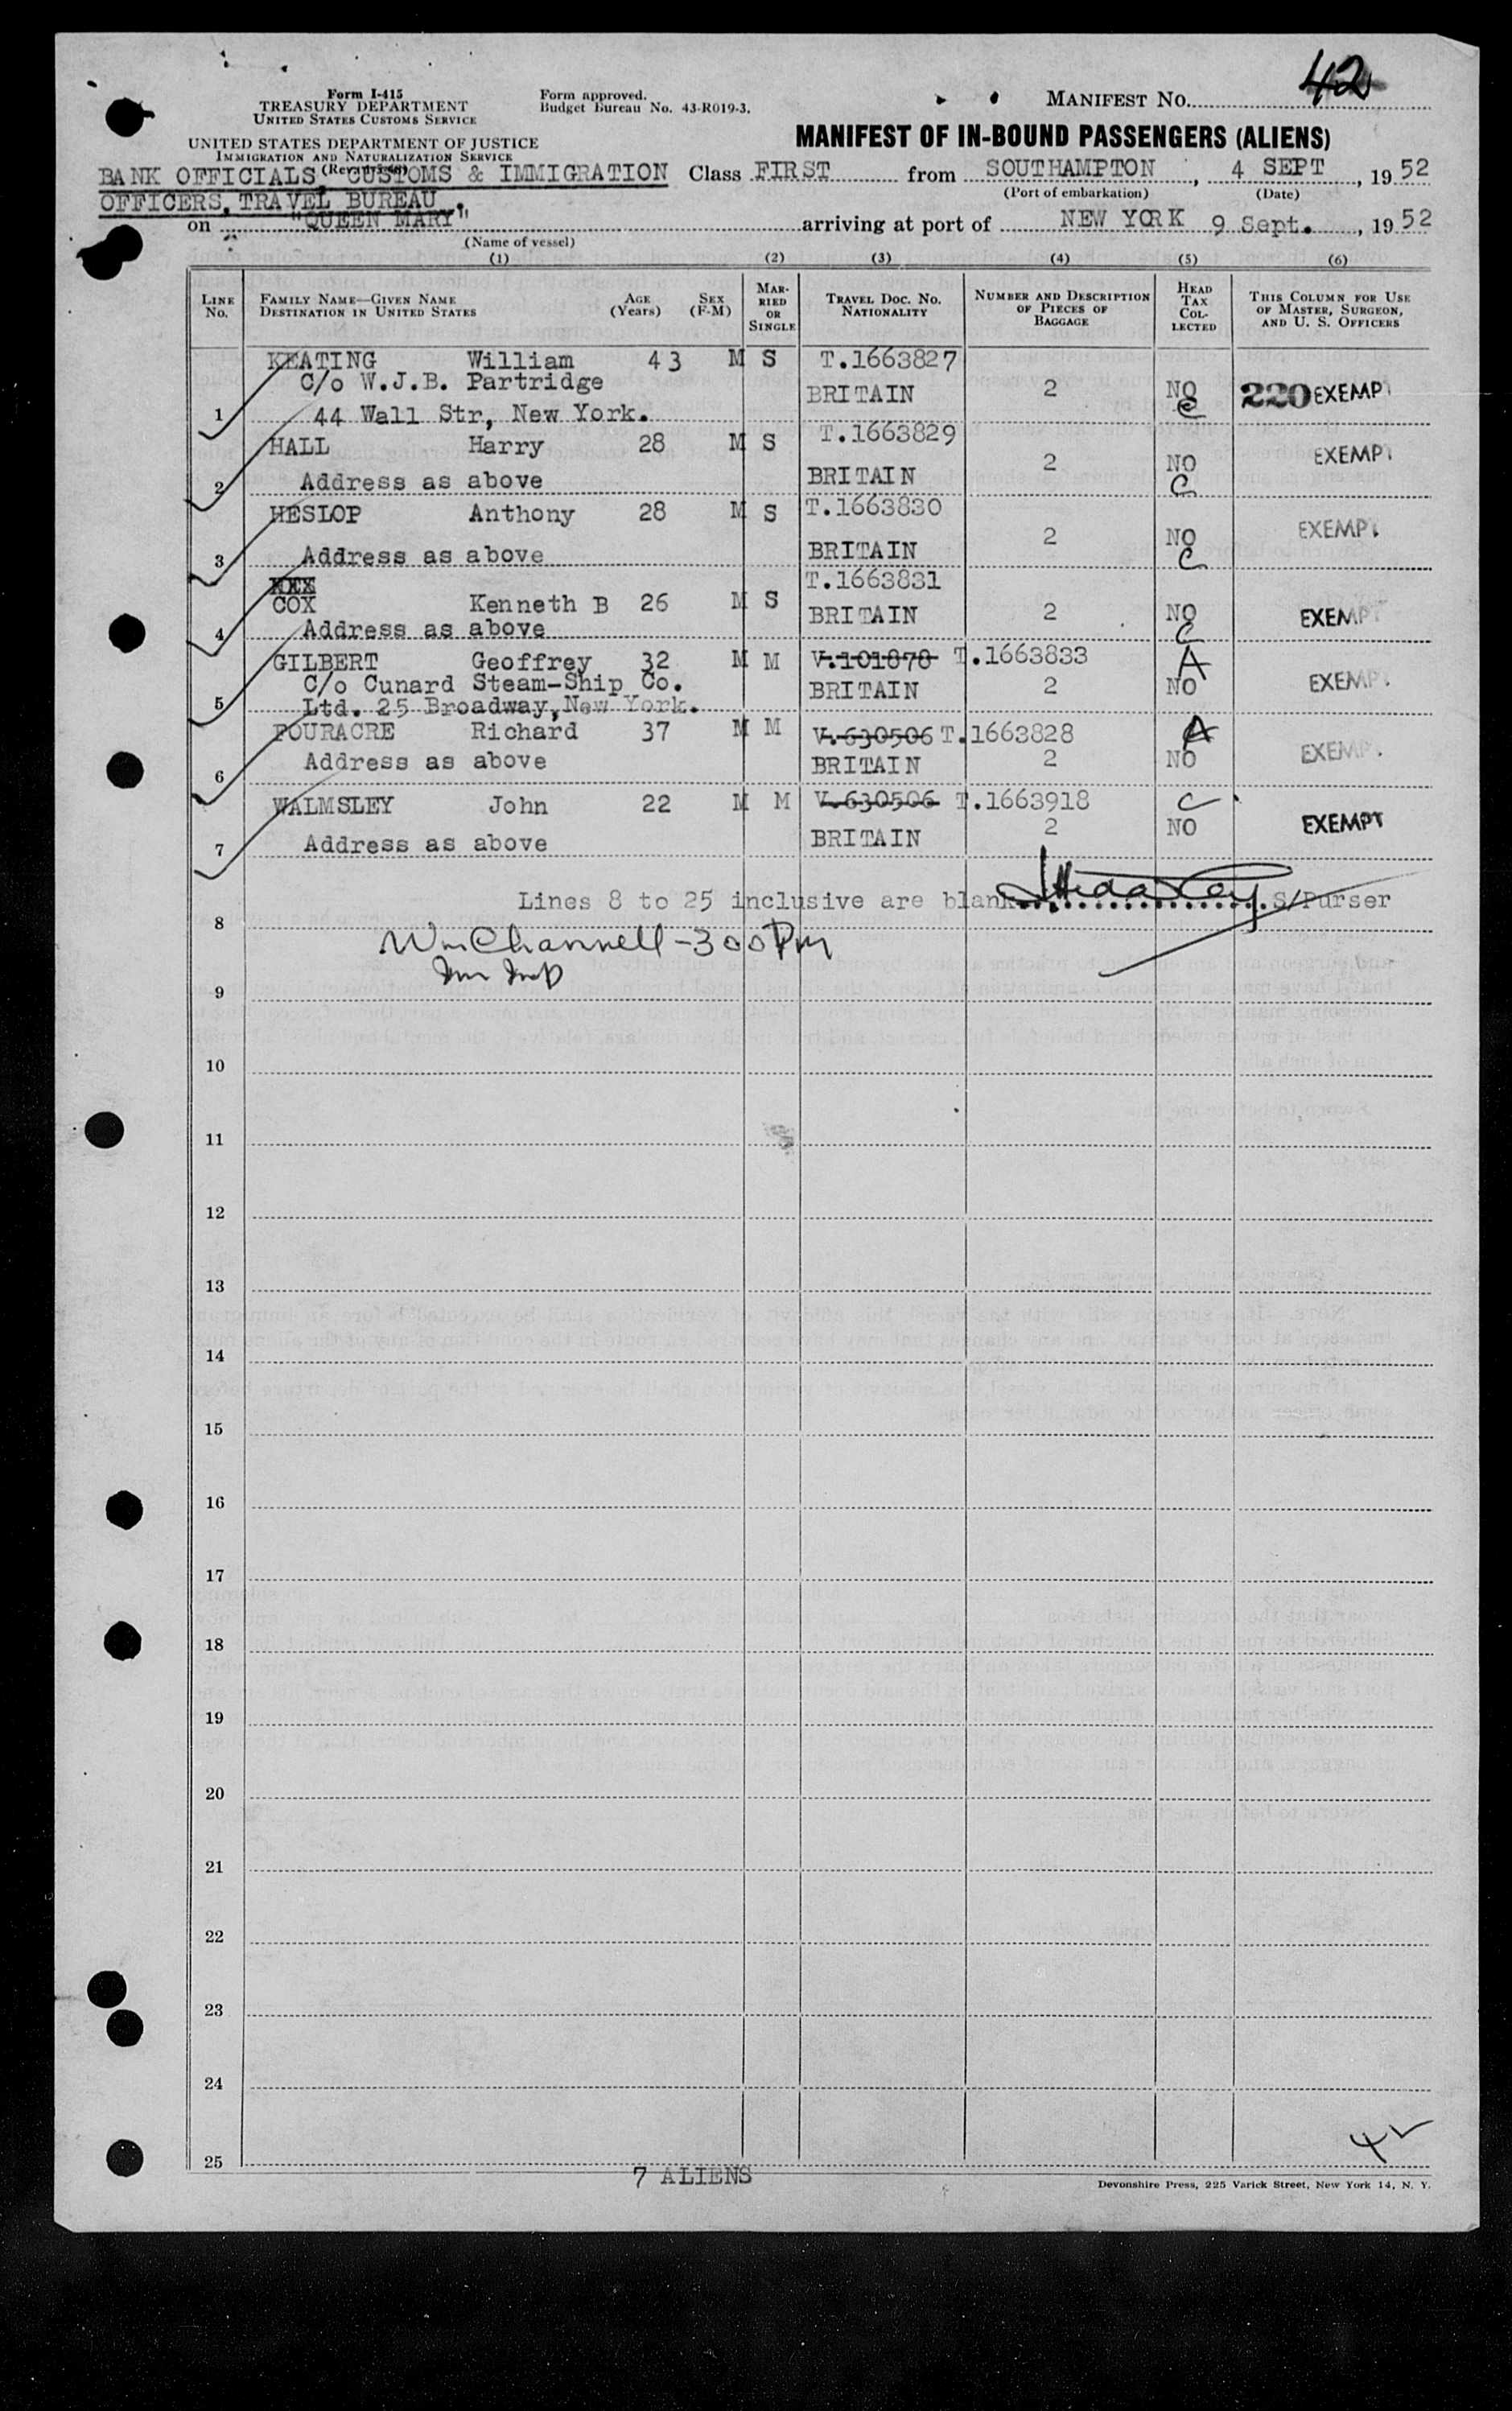 42
Form I-415
TREASURY DEPARTMENT
UNITED STATES CUSTOMS SERVICE
Form approved.
Budget Bureau No. 43-R019-3.
MANIFEST No.
UNITED STATES DEPARTMENT OF JUSTICE
IMMIGRATION AND NATURALIZATION SERVICE
MANIFEST OF IN-BOUND PASSENGERS (ALIENS)
BANK OFFICIALS, CUSTOMS & IMMIGRATION Class FIRST from SOUTHAMPTON, 4 SEPT, 1952
(Port of embarkation) (Date)
OFFICERS, TRAVEL BUREAU.
on "QUEEN MARY" arriving at port of NEW YORK 9 Sept., 1952
(Name of vessel)
(1) (2) (3) (4) (5) (6)
LINE No.
FAMILY NAME—GIVEN NAME
DESTINATION IN UNITED STATES
AGE (Years)
SEX (F-M)
MARRIED OR SINGLE
TRAVEL DOC. NO.
NATIONALITY
NUMBER AND DESCRIPTION OF PIECES OF BAGGAGE
HEAD TAX COLLECTED
THIS COLUMN FOR USE OF MASTER, SURGEON, AND U. S. OFFICERS
KEATING William 43 M S T.1663827
C/o W.J.B. Partridge BRITAIN 2 NO C 220 EXEMPT
1 44 Wall Str, New York.
HALL Harry 28 M S T.1663829 2 NO EXEMPT
2 Address as above BRITAIN C
HESLOP Anthony 28 M S T.1663830 2 NO EXEMPT
3 Address as above BRITAIN C
T.1663831
COX Kenneth B 26 M S BRITAIN 2 NO EXEMPT
4 Address as above C
GILBERT Geoffrey 32 M M V.101878 T.1663833 A
C/o Cunard Steam-Ship Co. BRITAIN 2 NO EXEMPT
5 Ltd. 25 Broadway, New York.
FOURACRE Richard 37 M M V.630506 T.1663828 A
6 Address as above BRITAIN 2 NO EXEMPT
WALMSLEY John 22 M M V.630506 T.1663918 C
7 Address as above BRITAIN 2 NO EXEMPT
Lines 8 to 25 inclusive are blank S/Purser
8
Wm Channell - 3 00 PM
Imm Insp
9
10
11
12
13
14
15
16
17
18
19
20
21
22
23
24
42
25
7 ALIENS
Devonshire Press, 225 Varick Street, New York 14, N. Y.